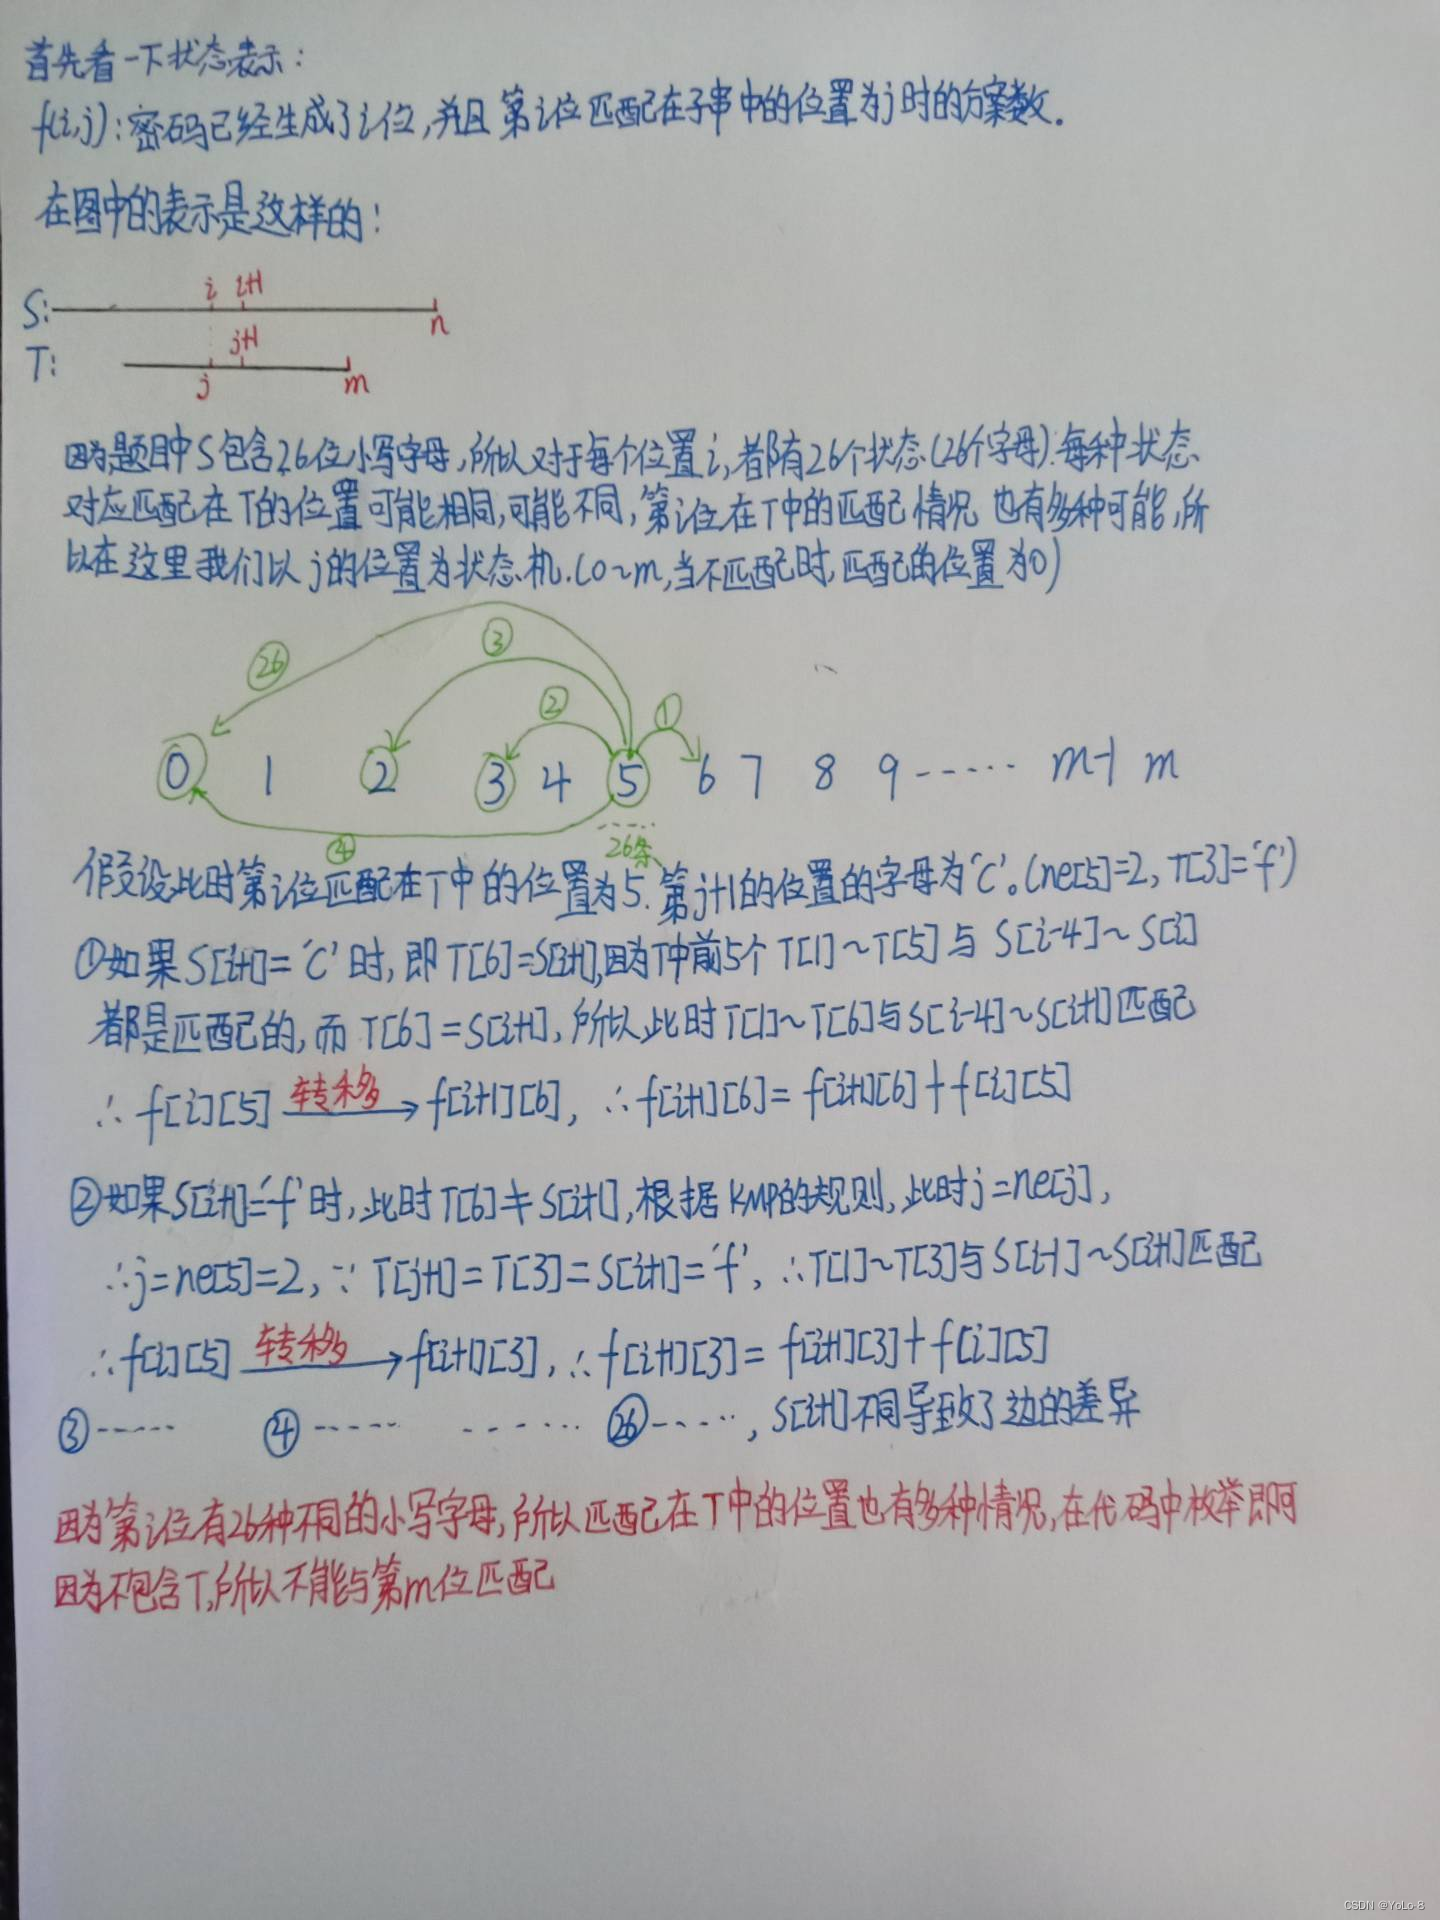 首先看一下状态表示：
f(i,j)：密码已经生成了i位，并且第i位匹配在子串中的位置为j时的方案数．
在图中的表示是这样的：
i i+1
S:
n
j+1
T:
j m
因为题目中S包含26位小写字母，所以对于每个位置i，都有26个状态(26个字母)．每种状态
对应匹配在T的位置可能相同，可能不同，第i位在T中的匹配情况也有多种可能，所
以在这里我们以j的位置为状态机．(0~m，当不匹配时，匹配的位置为0)
㉖ ③
② ①
0 1 2 3 4 5 6 7 8 9 ----- m-1 m
④ 26条
假设此时第i位匹配在T中的位置为5．第j+1的位置的字母为'C'。(ne[5]=2, T[3]='f')
①如果S[i+1]='C'时，即T[6]=S[i+1]，因为T中前5个T[1]~T[5]与S[i-4]~S[i]
都是匹配的，而T[6]=S[i+1]，所以此时T[1]~T[6]与S[i-4]~S[i+1]匹配
∴ f[i][5] 转移→ f[i+1][6]，∴ f[i+1][6]= f[i+1][6]+f[i][5]
②如果S[i+1]='f'时，此时T[6]≠S[i+1]，根据KMP的规则，此时j=ne[j]，
∴j=ne[5]=2，∵ T[j+1]=T[3]=S[i+1]='f'，∴T[1]~T[3]与S[i-1]~S[i+1]匹配
∴f[i][5] 转移→ f[i+1][3]，∴f[i+1][3]= f[i+1][3]+f[i][5]
③----- ④----- ------ ㉖-----，S[i+1]不同导致了边的差异
因为第i位有26种不同的小写字母，所以匹配在T中的位置也有多种情况，在代码中枚举即可
因为不包含T，所以不能与第m位匹配
CSDN @YoLo-8